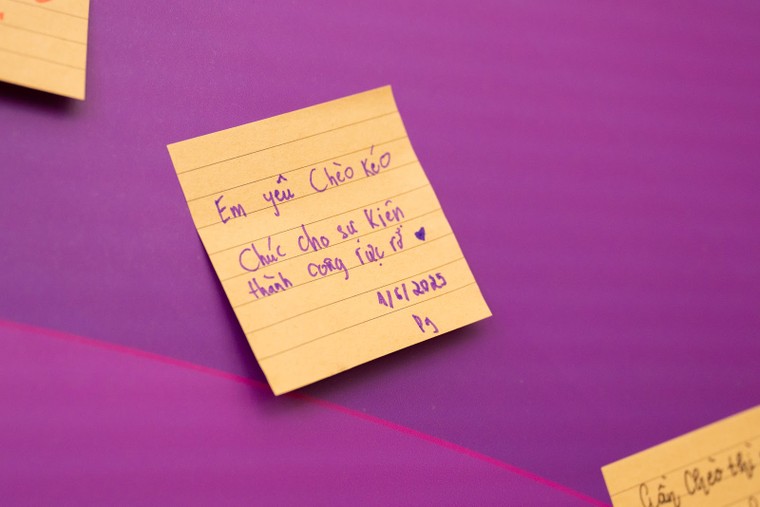 Em yêu Chèo Kéo
Chúc cho sự kiện
thành công rực rỡ
1/6/2025
Pg
Gần Chèo thì